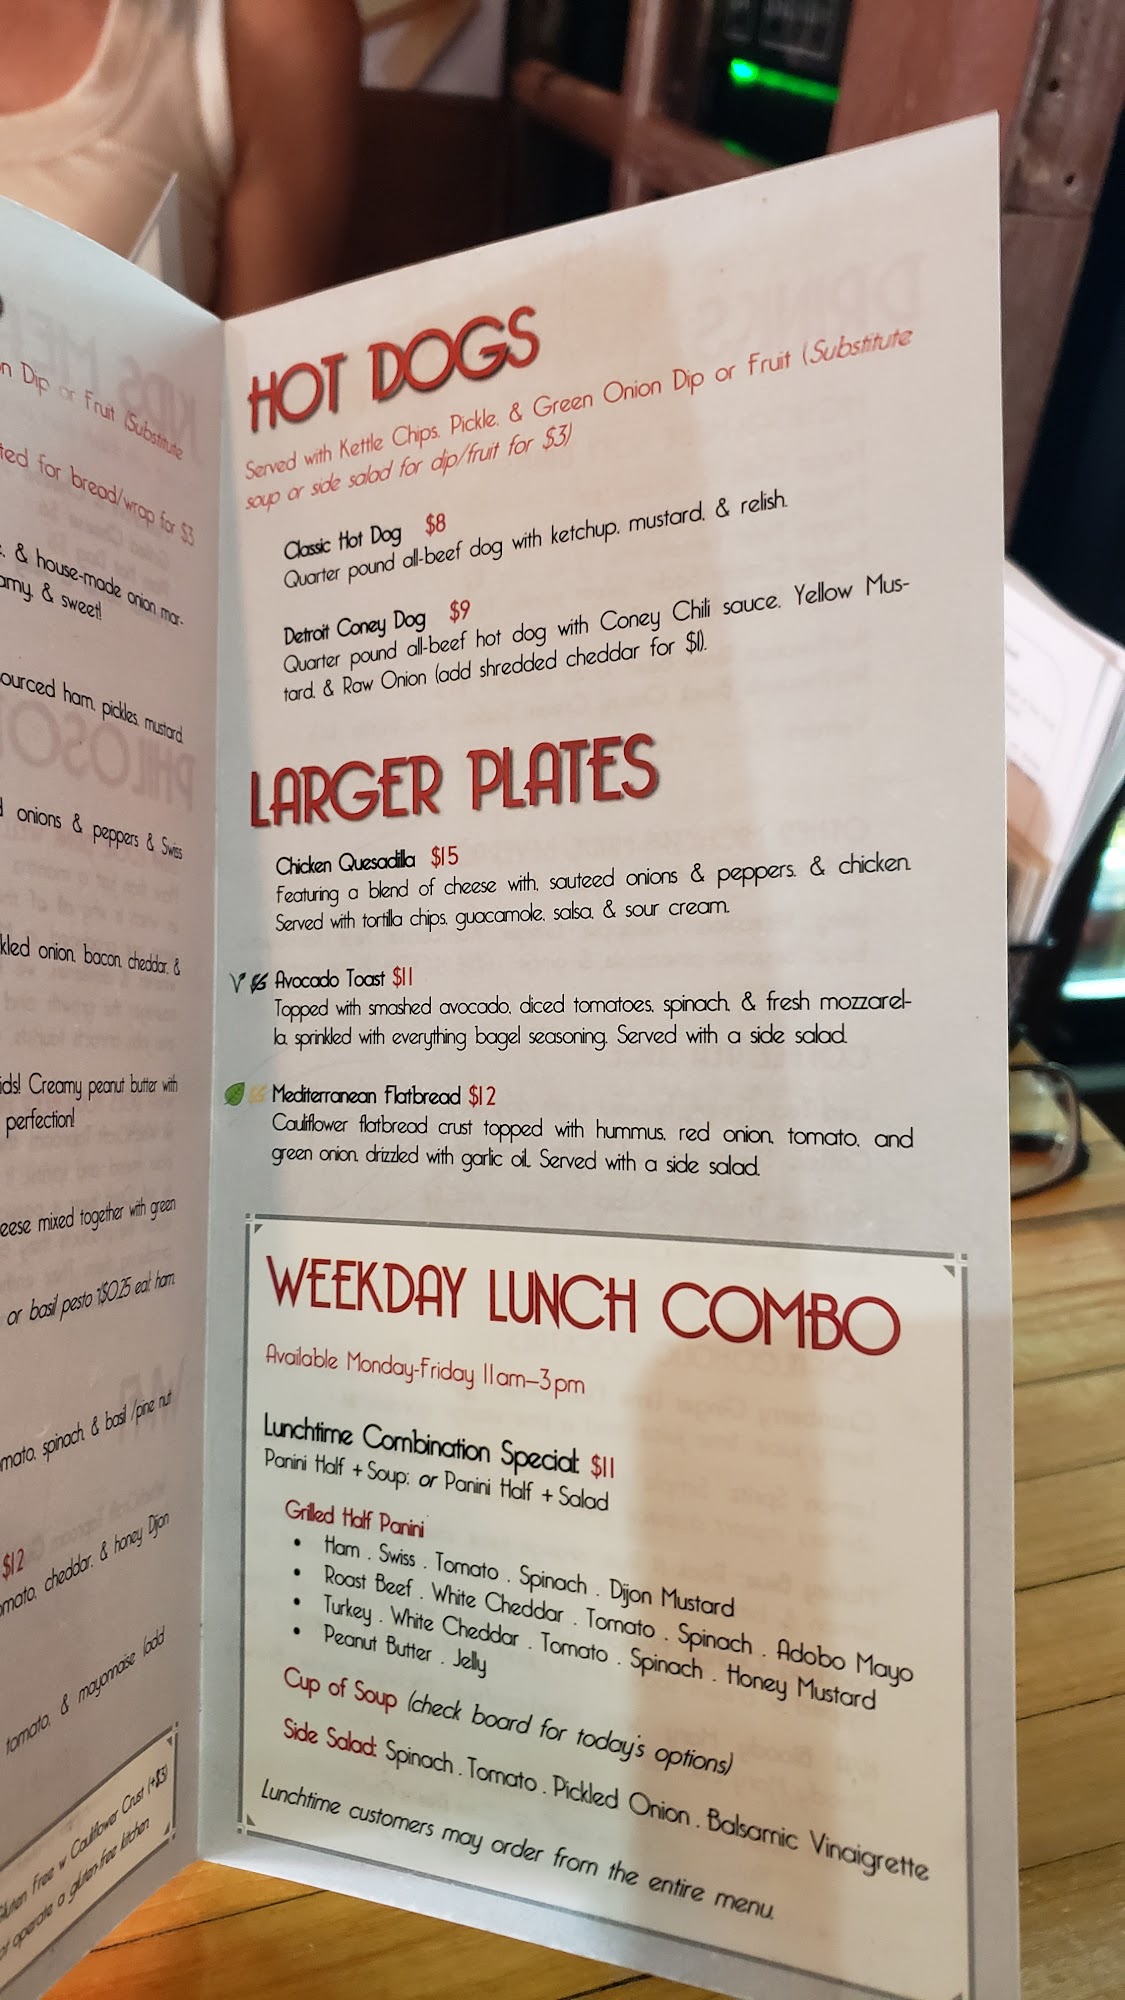 on Dip or Fruit (Substitute
ted for bread/wrap for $3
& house-made onion mar-
amy, & sweet!
ourced ham, pickles, mustard,
onions & peppers & Swiss
kled onion, bacon, cheddar, &
ids! Creamy peanut butter with
perfection!
eese mixed together with green
or basil pesto
ham,
mato, spinach, & basil/pine nut
$12
omato, cheddar, & honey Dijon
tomato, & mayonnaise (add
Gluten Free w Cauliflower Crust (+$3)
operate a gluten-free kitchen
HOT DOGS
Served with Kettle Chips, Pickle, & Green Onion Dip or Fruit (Substitute
soup or side salad for dip/fruit for $3)
Classic Hot Dog $8
Quarter pound all-beef dog with ketchup, mustard, & relish.
Detroit Coney Dog $9
Quarter pound all-beef hot dog with Coney Chili sauce, Yellow Mus-
tard, & Raw Onion (add shredded cheddar for $1).
LARGER PLATES
Chicken Quesadilla $15
Featuring a blend of cheese with, sauteed onions & peppers, & chicken.
Served with tortilla chips, guacamole, salsa, & sour cream.
Avocado Toast $11
Topped with smashed avocado, diced tomatoes, spinach, & fresh mozzarel-
la, sprinkled with everything bagel seasoning. Served with a side salad.
Mediterranean Flatbread $12
Cauliflower flatbread crust topped with hummus, red onion, tomato, and
green onion, drizzled with garlic oil. Served with a side salad.
WEEKDAY LUNCH COMBO
Available Monday-Friday 11am–3pm
Lunchtime Combination Special: $11
Panini Half + Soup; or Panini Half + Salad
Grilled Half Panini
• Ham . Swiss . Tomato . Spinach . Dijon Mustard
• Roast Beef . White Cheddar . Tomato . Spinach . Adobo Mayo
• Turkey . White Cheddar . Tomato . Spinach . Honey Mustard
• Peanut Butter . Jelly
Cup of Soup (check board for today's options)
Side Salad: Spinach . Tomato . Pickled Onion . Balsamic Vinaigrette
Lunchtime customers may order from the entire menu.